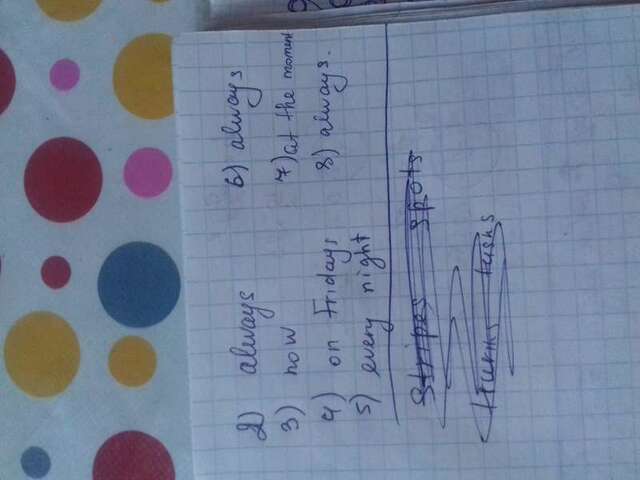 2) always
3) now
4) on Fridays
5) every night
6) always
7) at the moment
8) always.
Stripes spots
trunks tusks